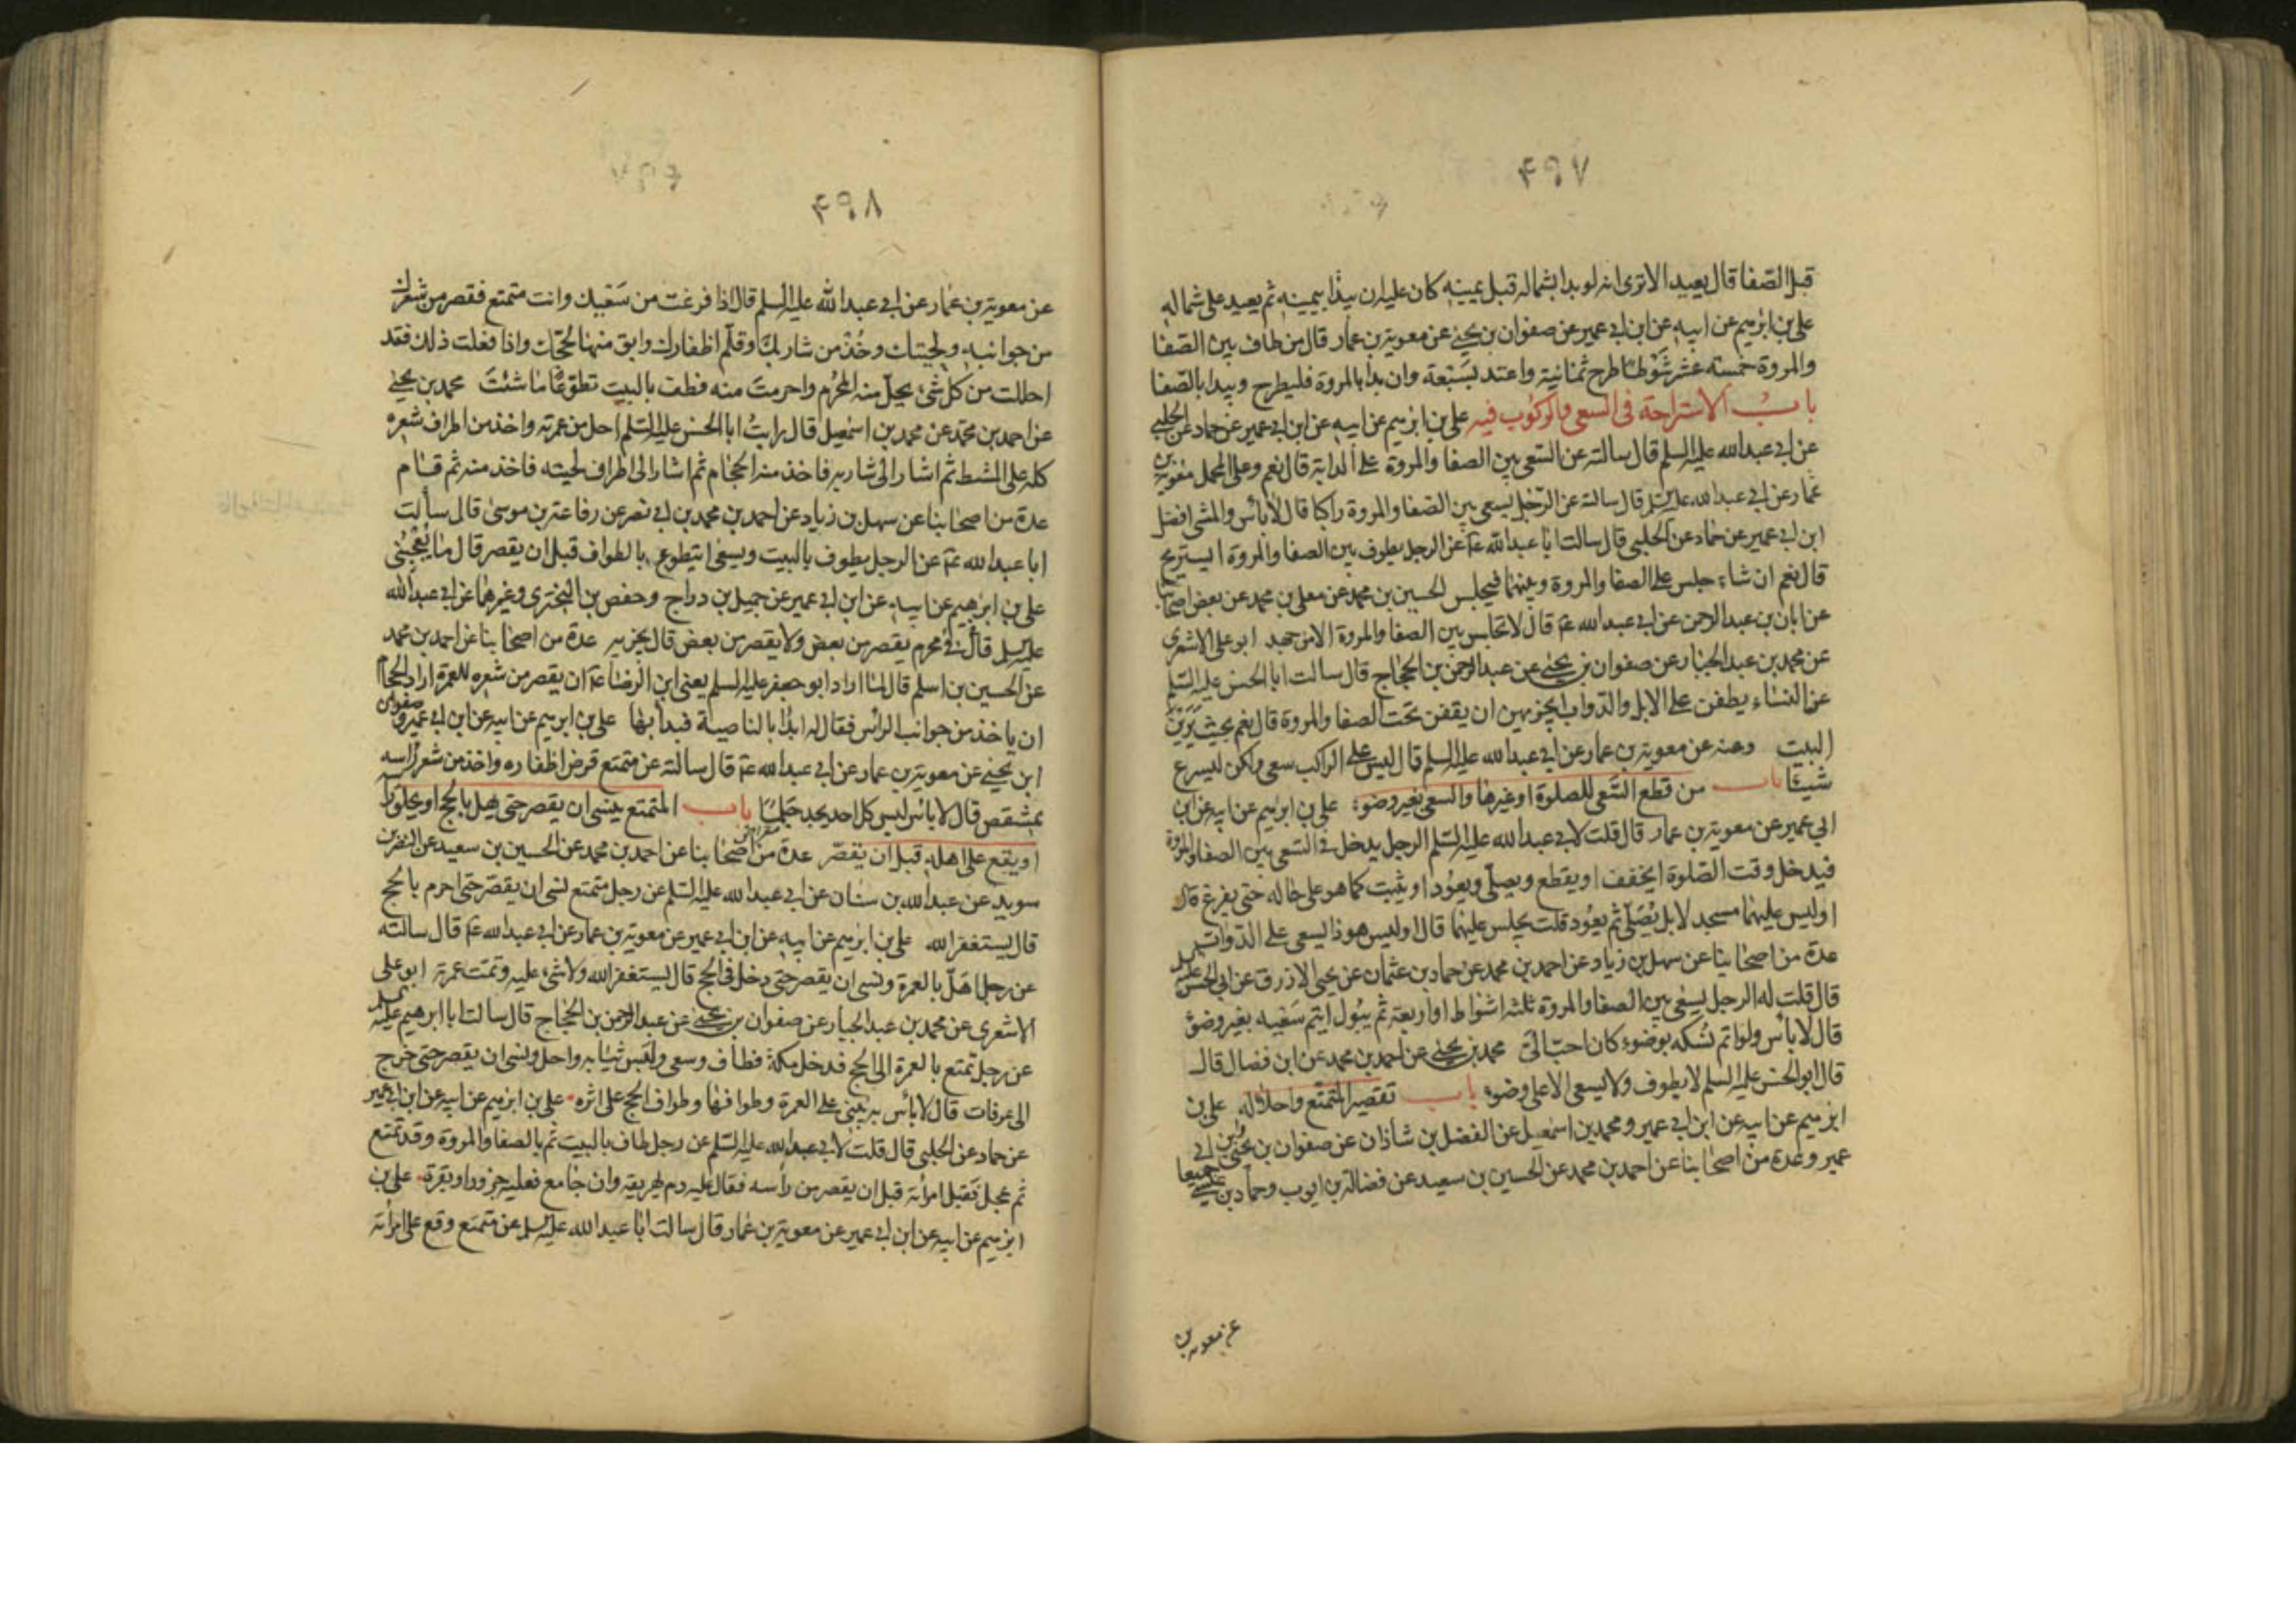 ۴۹۷
قبل الصفا قال يعيد الا ترى انه لو بدا بشماله قبل يمينه كان عليه ان يبدأ بيمينه ثم يعيد على شماله
على بن ابرهيم عن ابيه عن ابن ابى عمير عن صفوان بن يحيى عن معوية بن عمار قال من طاف بين الصفا
والمروة خمسة عشر شوطا طرح ثمانية واعتد بسبعة وان بدا بالمروة فليطرح ويبدا بالصفا
باب الاستراحة فى السعى والركوب فيه على بن ابرهيم عن ابيه عن ابن ابى عمير عن حماد عن الحلبى
عن ابى عبد الله عليه السلم قال سالته عن السعى بين الصفا والمروة على الدابة قال نعم وعلى المحمل معوية بن
عمار عن ابى عبد الله عليه السلم قال سالته عن الرجل يسعى بين الصفا والمروة راكبا قال لا بأس والمشى افضل
ابن ابى عمير عن حماد عن الحلبى قال سالت ابا عبد الله ع عن الرجل يطوف بين الصفا والمروة ايستريح
قال نعم ان شاء جلس على الصفا والمروة وبينهما فيجلس الحسين بن محمد عن معلى بن محمد عن بعض اصحابنا
عن ابان بن عبد الرحمن عن ابى عبد الله ع قال لا تجلس بين الصفا والمروة الا من جهد ابو على الاشعرى
عن محمد بن عبد الجبار عن صفوان بن يحيى عن عبد الرحمن بن الحجاج قال سالت ابا الحسن عليه السلم
عن النساء يطفن على الابل والدواب ايجزيهن ان يقفن تحت الصفا والمروة قال نعم بحيث يرين
البيت وعنه عن معوية بن عمار عن ابى عبد الله عليه السلم قال ليس على الراكب سعى ولكن ليسرع
شيئا باب من قطع السعى للصلوة او غيرها والسعى بغير وضوء على بن ابرهيم عن ابيه عن ابن
ابى عمير عن معوية بن عمار قال قلت لابى عبد الله عليه السلم الرجل يدخل فى السعى بين الصفا والمروة
فيدخل وقت الصلوة ايخفف او يقطع ويصلى ويعود او يثبت كما هو على حاله حتى يفرغ قال
اوليس عليهما مسجد لا بل يصلى ثم يعود قلت يجلس عليهما قال اوليس هو ذا يسعى على الدواب
عدة من اصحابنا عن سهل بن زياد عن احمد بن محمد عن حماد بن عثمان عن يحيى الازرق عن ابى الحسن عليه السلم
قال قلت له الرجل يسعى بين الصفا والمروة ثلثة اشواط او اربعة ثم يبول ايتم سعيه بغير وضوء
قال لا بأس ولو اتم نسكه بوضوء كان احب الى محمد بن يحيى عن احمد بن محمد عن ابن فضال قال
قال ابو الحسن عليه السلم لا يطوف ولا يسعى الا على وضوء باب تقصير المتمتع واحلاله على بن
ابرهيم عن ابيه عن ابن ابى عمير ومحمد بن اسمعيل عن الفضل بن شاذان عن صفوان بن يحيى وابن ابى
عمير وعدة من اصحابنا عن احمد بن محمد عن الحسين بن سعيد عن فضالة بن ايوب وحماد بن عيسى جميعا
عن معوية بن
۴۹۸
عن معوية بن عمار عن ابى عبد الله عليه السلم قال اذا فرغت من سعيك وانت متمتع فقصر من شعرك
من جوانبه ولحيتك وخذ من شاربك وقلم اظفارك وابق منها لحجك واذا فعلت ذلك فقد
احللت من كل شئ يحل منه المحرم واحرمت منه فطف بالبيت تطوعا ما شئت محمد بن يحيى
عن احمد بن محمد عن محمد بن اسمعيل قال رايت ابا الحسن عليه السلم احل من عمرته واخذ من اطراف شعره
كله على المشط ثم اشار الى شاربه فاخذ منه الحجام ثم اشار الى اطراف لحيته فاخذ منه ثم قام
عدة من اصحابنا عن سهل بن زياد عن احمد بن محمد بن ابى نصر عن رفاعة بن موسى قال سألت
ابا عبد الله ع عن الرجل يطوف بالبيت ويسعى ايتطوع بالطواف قبل ان يقصر قال ما يعجبنى
على بن ابرهيم عن ابيه عن ابن ابى عمير عن جميل بن دراج وحفص بن البخترى وغيرهما عن ابى عبد الله
عليه السلم قال فى محرم يقصر من بعض ولا يقصر من بعض قال يجزيه عدة من اصحابنا عن احمد بن محمد
عن الحسين بن اسلم قال لما اراد ابو جعفر عليه السلم يعنى ابن الرضا ع ان يقصر من شعره للعمرة اراد الحجام
ان ياخذ من جوانب الرأس فقال له ابدأ بالناصية فبدأ بها على بن ابرهيم عن ابيه عن ابن ابى عمير وصفوان
ابن يحيى عن معوية بن عمار عن ابى عبد الله ع قال سالته عن متمتع قرض اظفاره واخذ من شعر رأسه
بمشقص قال لا بأس ليس كل احد يجد جلما باب المتمتع ينسى ان يقصر حتى يهل بالحج او يحلق رأسه
او يقع على اهله قبل ان يقصر عدة من اصحابنا عن احمد بن محمد عن الحسين بن سعيد عن النضر بن
سويد عن عبد الله بن سنان عن ابى عبد الله عليه السلم عن رجل متمتع نسى ان يقصر حتى احرم بالحج
قال يستغفر الله على بن ابرهيم عن ابيه عن ابن ابى عمير عن معوية بن عمار عن ابى عبد الله ع قال سالته
عن رجل اهل بالعمرة ونسى ان يقصر حتى دخل فى الحج قال يستغفر الله ولا شئ عليه وتمت عمرته ابو على
الاشعرى عن محمد بن عبد الجبار عن صفوان بن يحيى عن عبد الرحمن بن الحجاج قال سالت ابا ابرهيم عليه السلم
عن رجل تمتع بالعمرة الى الحج فدخل مكة فطاف وسعى ولبس ثيابه واحل ونسى ان يقصر حتى خرج
الى عرفات قال لا بأس به يبنى على العمرة وطوافها وطواف الحج على اثره على بن ابرهيم عن ابيه عن ابن ابى عمير
عن حماد عن الحلبى قال قلت لابى عبد الله عليه السلم عن رجل طاف بالبيت ثم بالصفا والمروة وقد تمتع
ثم عجل فقبل امرأته قبل ان يقصر من رأسه فقال عليه دم يهريقه وان جامع فعليه جزور او بقرة على بن
ابرهيم عن ابيه عن ابن ابى عمير عن معوية بن عمار قال سالت ابا عبد الله عليه السلم عن متمتع وقع على امرأته